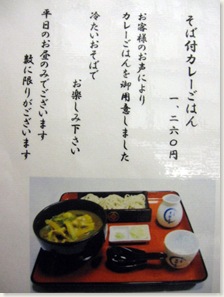 そば付カレーごはん
一、二六〇円
お客様のお声により
カレーごはんを御用意しました
冷たいおそばで
お楽しみ下さい
平日のお昼のみでございます
数に限りがございます